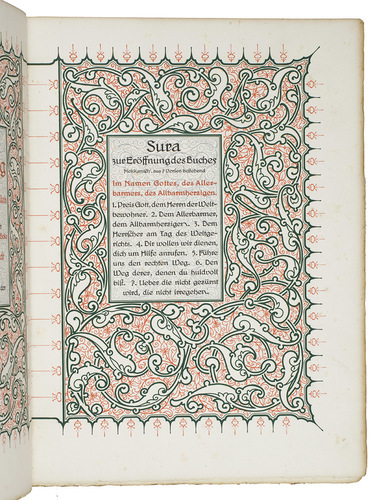 Sura
zur Eröffnung des Buches
Mekkanisch, aus 7 Versen bestehend
Im Namen Gottes, des Aller-
barmers, des Allbarmherzigen.
1. Preis Gott, dem Herrn der Welt-
bewohner. 2. Dem Allerbarmer,
dem Allbarmherzigen. 3. Dem
Herrscher am Tag des Weltge-
richts. 4. Dir wollen wir dienen,
dich um Hilfe anrufen. 5. Führe
uns den rechten Weg. 6. Den
Weg derer, denen du huldvoll
bist. 7. Ueber die nicht gezürnt
wird, die nicht irregehen.